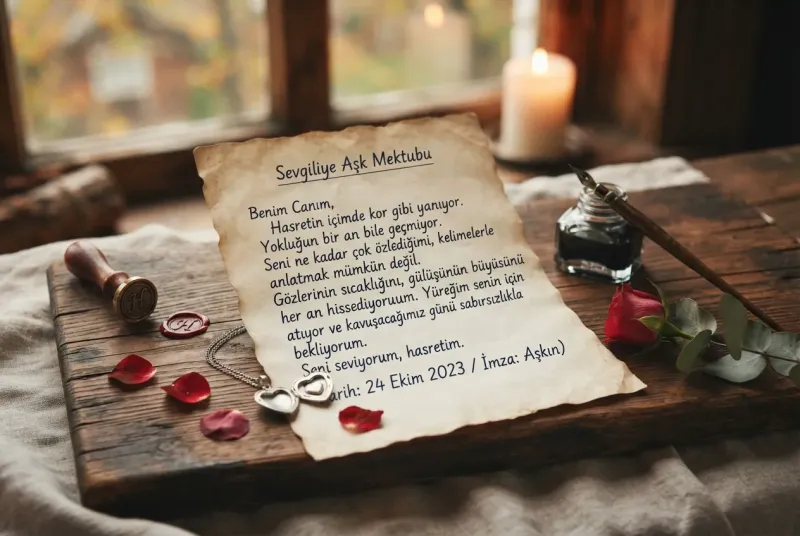 Sevgiliye Aşk Mektubu
Benim Canım,
Hasretin içimde kor gibi yanıyor.
Yokluğun bir an bile geçmiyor.
Seni ne kadar çok özlediğimi, kelimelerle
anlatmak mümkün değil.
Gözlerinin sıcaklığını, gülüşünün büyüsünü
her an hissediyoruum. Yüreğim senin için
atıyor ve kavuşacağımız günü sabırsızlıkla
bekliyorum.
Seni seviyorum, hasretim.
arih: 24 Ekim 2023 / İmza: Aşkın)
H